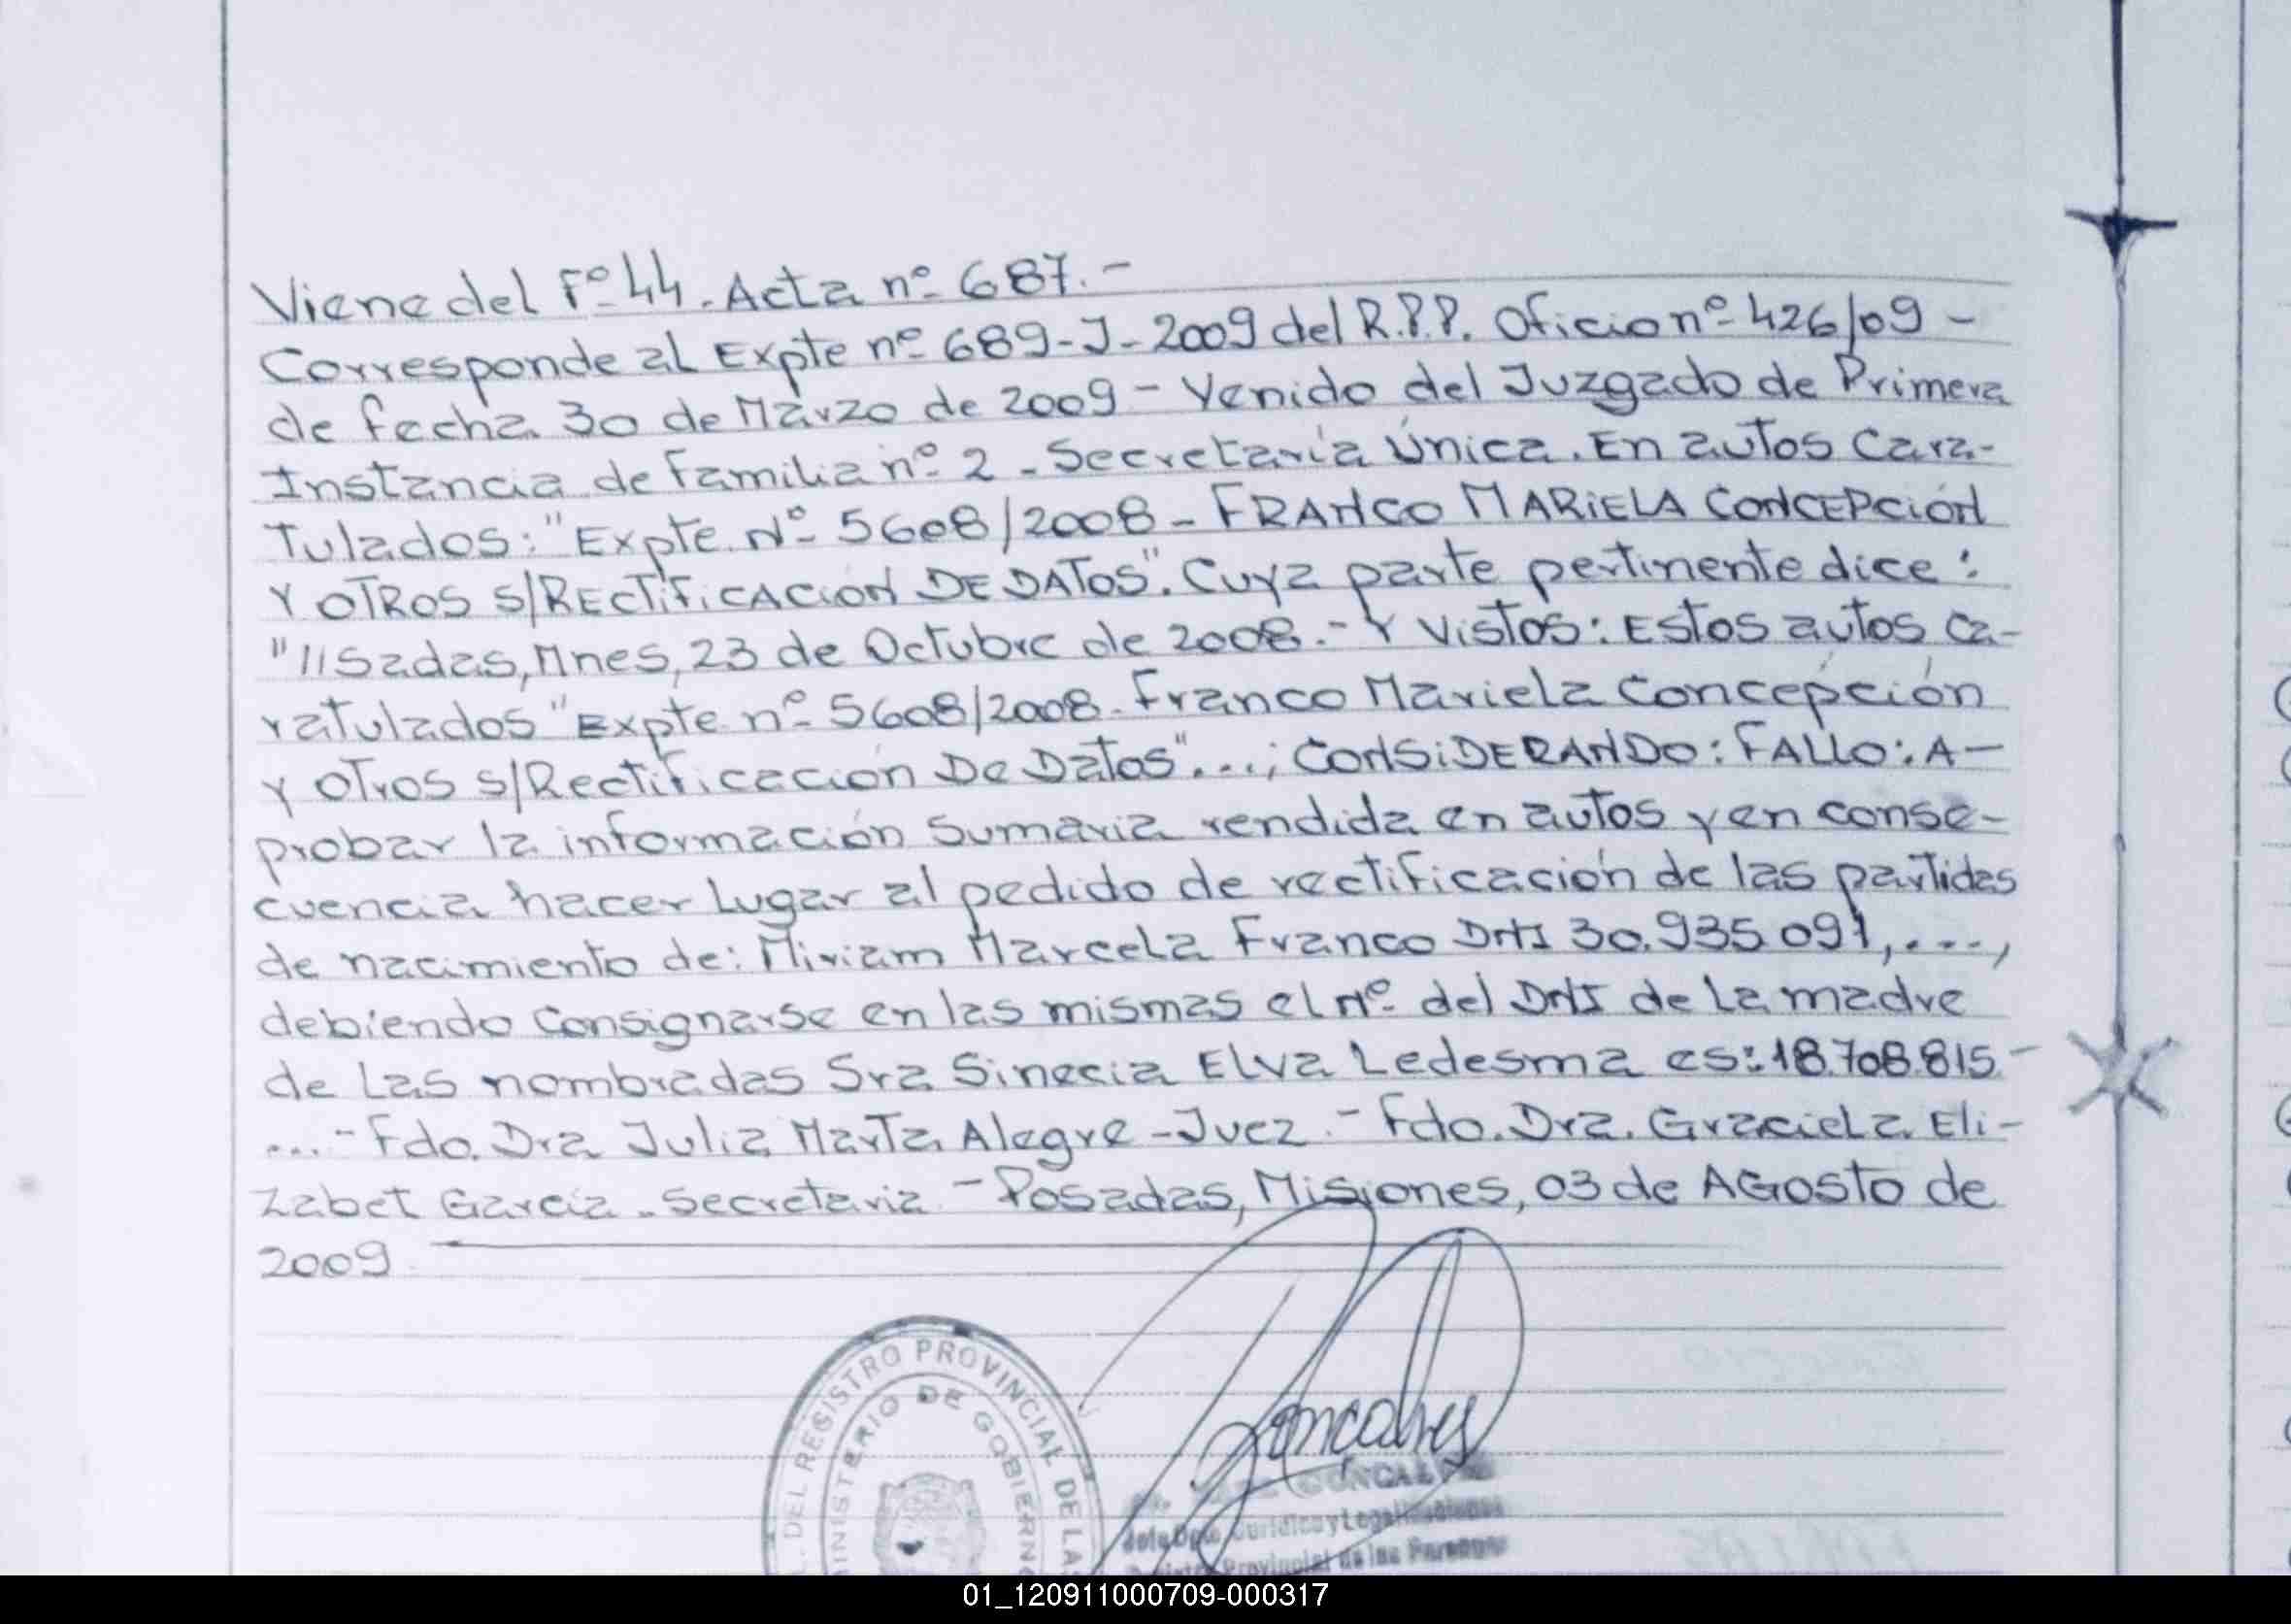 Viene del Fº 44. Acta nº 687.-
Corresponde al Expte nº 689-J-2009 del R.P.P. Oficio nº 426/09 -
de fecha 30 de Marzo de 2009 - Venido del Juzgado de Primera
Instancia de Familia nº 2 - Secretaría Única. En autos Cara-
Tulados: "Expte. Nº 5608/2008 - FRANCO MARIELA CONCEPCIÓN
Y OTROS S/RECTIFICACIÓN DE DATOS". Cuya parte pertinente dice:
"//sadas, Mnes, 23 de Octubre de 2008.- Y Vistos: Estos autos ca-
ratulados "Expte nº 5608/2008. Franco Mariela Concepción
y Otros s/Rectificación De Datos"...; CONSIDERANDO: FALLO: A-
probar la información Sumaria rendida en autos y en conse-
cuencia hacer Lugar al pedido de rectificación de las partidas
de nacimiento de: Miriam Marcela Franco DNI 30.935.091, ...,
debiendo Consignarse en las mismas el Nº del DNI de La madre
de Las nombradas Sra Sinecia Elva Ledesma es: 18.708.815.-
...- Fdo. Dra Julia Marta Alegre - Juez.- Fdo. Dra. Graciela Eli-
zabet García - Secretaria - Posadas, Misiones, 03 de AGosto de
2009.
DEL REGISTRO PROVINCIAL DE LAS
MINISTERIO DE GOBIERNO
Goncalves
GONCALVES
Jefe Dpto. Jurídico y Legalizaciones
Registro Provincial de las Personas
01_120911000709-000317